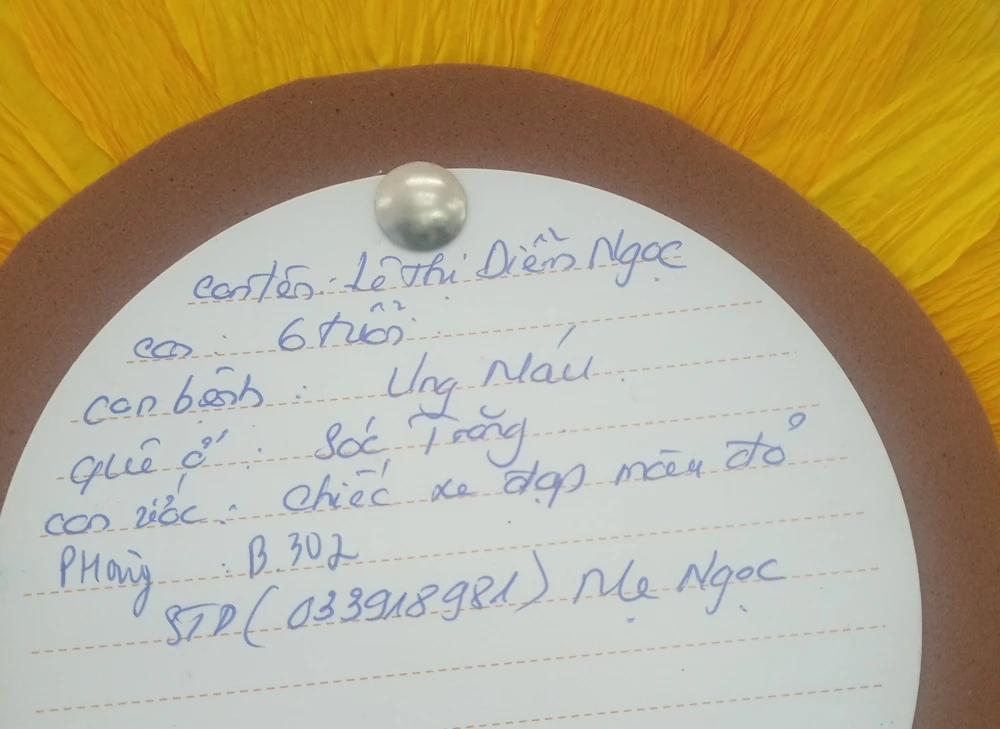 con tên: Lê Thị Diễn Ngọc
con : 6 tuổi
con bệnh : Ung Máu
quê ở : Sóc Trăng
con ước : chiếc xe đạp màu đỏ
PHòng : B.302
STD (033918981) Mẹ Ngọc